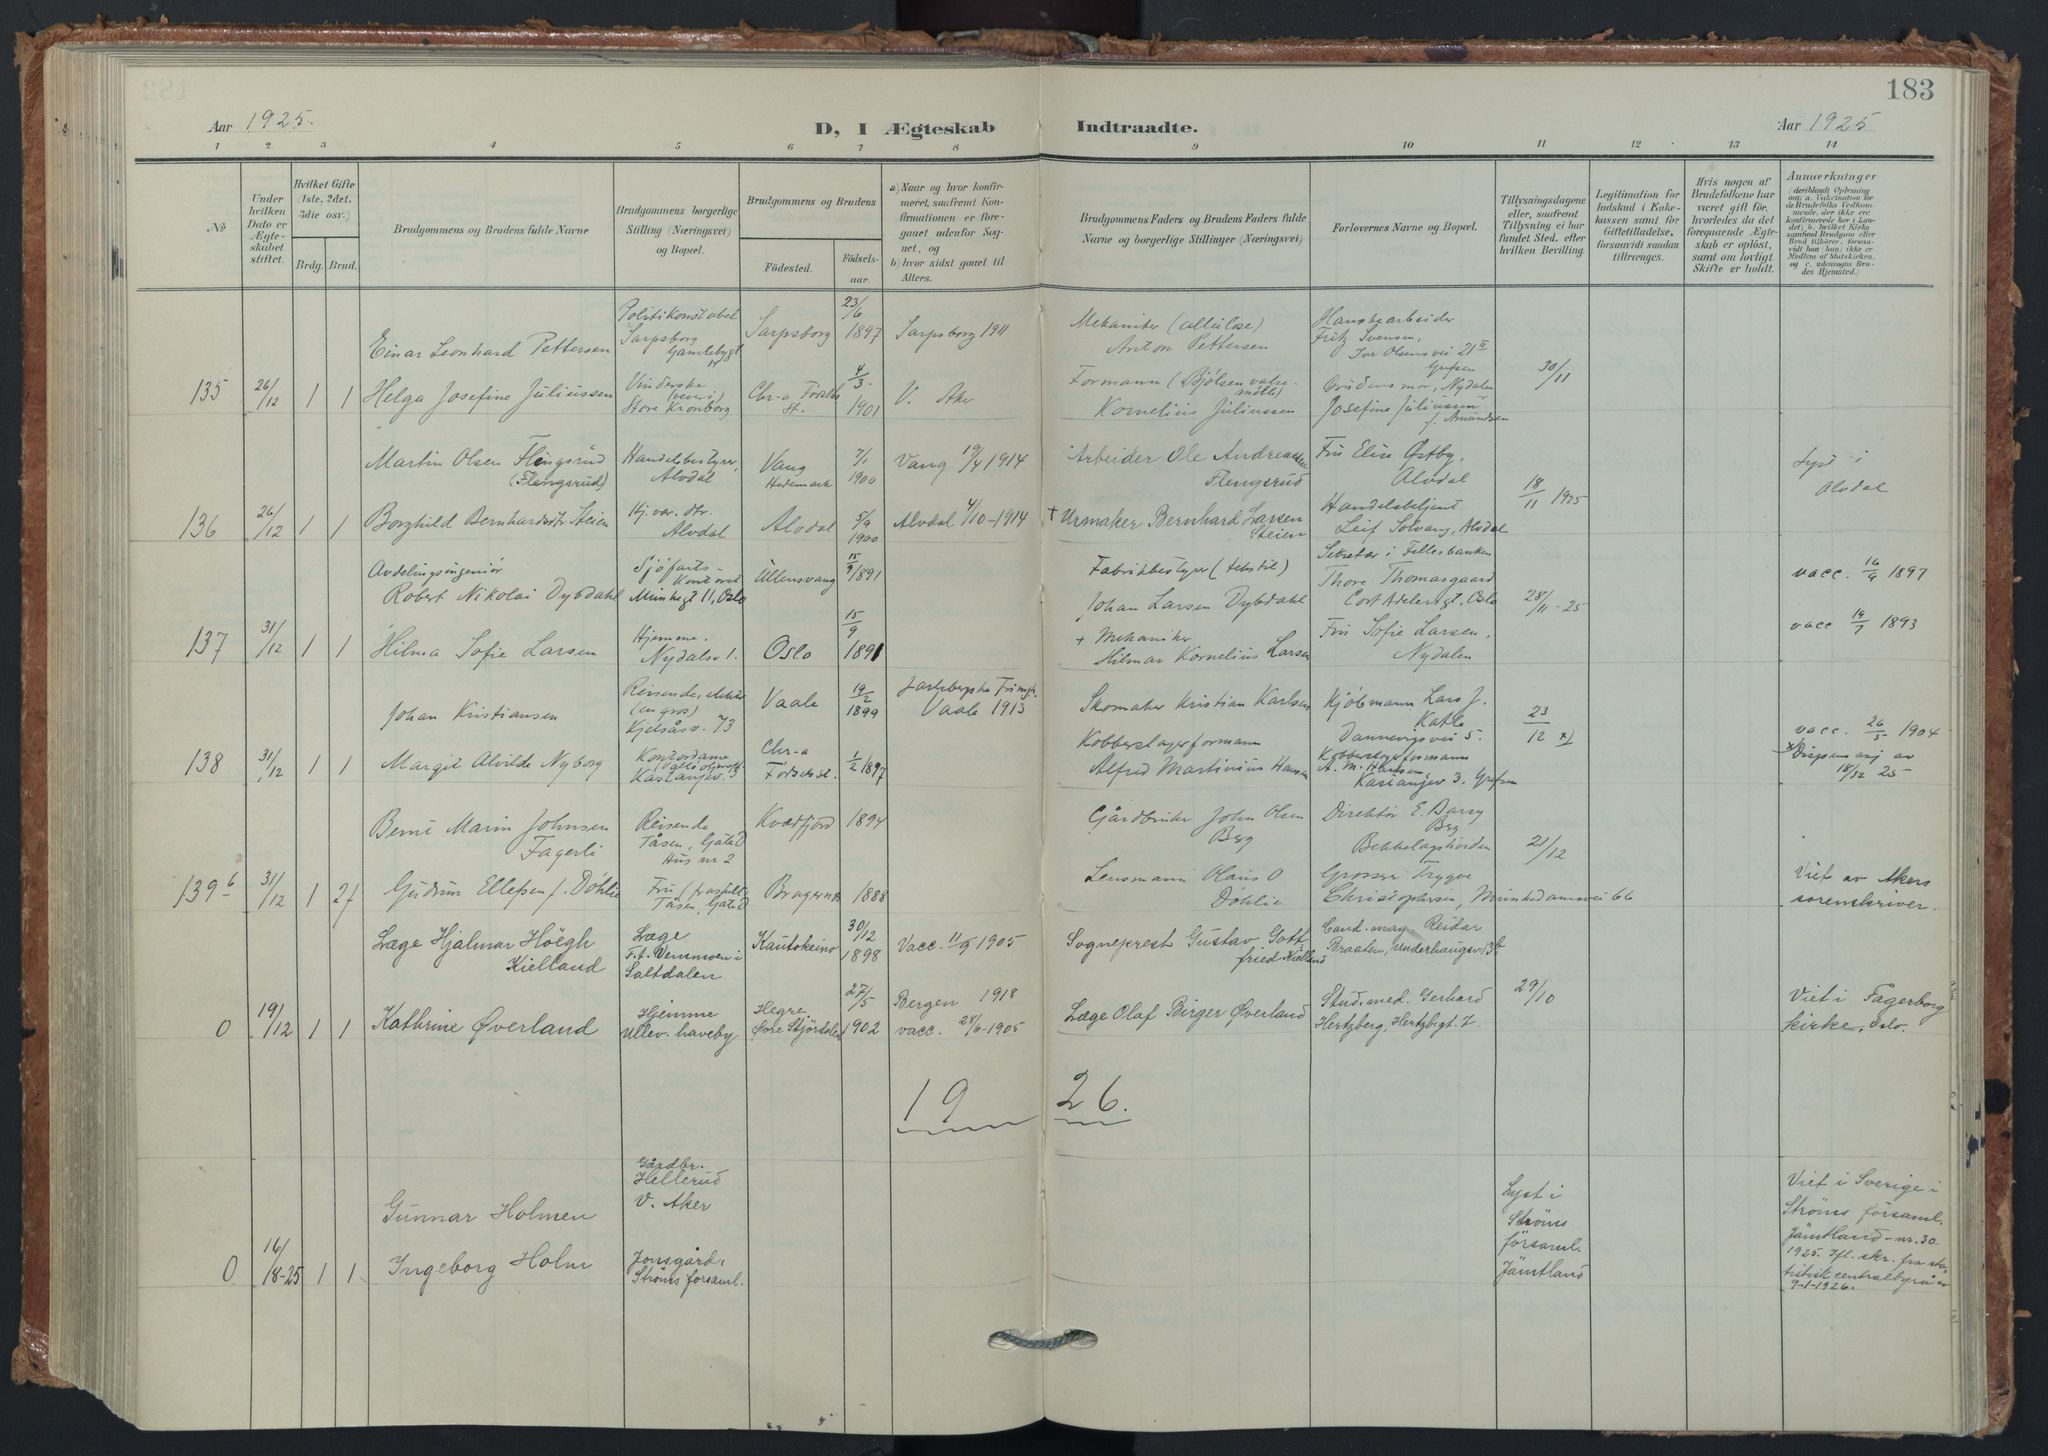 183
Aar 1925.
D, I Ægteskab Indtraadte.
Aar 1925
1 2 3 4 5 6 7 8 9 10 11 12 13 14
No
Under hvilken Dato er Ægteskabet stiftet.
Hvilket Gifte (1ste, 2det, 3die osv.)
Brdg. Brud.
Brudgommens og Brudens fulde Navne
Brudgommens borgerlige Stilling (Næringsvei) og Bopæl.
Brudgommens og Brudens
Födested. Födsels-aar.
a) Naar og hvor konfirmeret, saafremt Konfirmationen er foregaaet udenfor Sognet, og
b) hvor sidst gaaet til Alters.
Brudgommens Faders og Brudens Faders fulde Navne og borgerlige Stillinger (Næringsvei)
Forlovernes Navne og Bopæl.
Tillysningsdagene eller, saafremt Tillysning ei har fundet Sted, efter hvilken Bevilling.
Legitimation for Indskud i Enkekassen samt for Giftetilladelse, forsaavidt saadan tiltrænges.
Hvis nogen af Brudefolkene har været gift før, hvorledes da det foregaaende Ægteskab er oplöst, samt om lovligt Skifte er holdt.
Anmærkninger
Einar Leonhard Pettersen
Politikonstabel
Sarpsborg
Sarpsborg
23/6 1897
Sarpsborg 1911
Mekaniker
Anton Pettersen
Hanskearbeider
Fritz Svensen,
Iver Olsensvei 21 II
Grefsen
135 26/12 1 1
Helga Josefine Juliussen
Store Kronborg
4/3. 1901
V. Aker
Formann (Bjölsen valsemölle)
Kornelius Juliussen
Brudens mor, Nydalen
Josefine Juliussen
f. Amundsen
30/11
Martin Olsen Flengsrud
(Flengsrud)
Handelsbestyrer,
Alvdal
Vang
Hedemark
7/1 1900
Vang 19/4 1914
Arbeider Ole Andreassen
Flengsrud
Fru Elise Østby,
Alvdal
Lyst i
Alvdal
136 26/12 1 1
Borghild Bernhardsdtr Steien
Hj. vær. dtr.
Alvdal
Alvdal
5/9 1900
Alvdal 4/10-1914
+ Urmaker Bernhard Larsen
Steien
Handelsbetjent
Leif Solvang, Alvdal
18/11 1925
Avdelingsingeniör
Robert Nikolai Dybdahl
Sjöfarts-
Kontoret
Munkegt 11, Oslo
Ullensvang
15/9 1891
Fabrikbestyrer (tekstil)
Johan Larsen Dybdahl
Sekretær i Fellesbanken
Thore Thomasgaard
Cort Adelersgt, Oslo
28/11-25
vacc. 16/9 1897
137 31/12 1 1
Hilma Sofie Larsen
Hjemme.
Nydalsv 1.
Oslo
15/9 1891
+ Mekaniker
Hilmar Kornelius Larsen
Fru Sofie Larsen,
Nydalen
vacc 19/7 1893
Johan Kristiansen
Reisende,
(en gros)
Kjelsåsv. 73
Vaale
19/2 1899
Jarlsbergske Frimgh.
Vaale 1913
Skomaker Kristian Karlsen
Kjöbmann Lars J.
Dannevigsvei 5.
23/12 x)
vacc. 26/5 1904
138 31/12 1 1
Margit Alvilde Nyborg
Kontordame
Kastanjev. 3
Chr-a
Födselsst.
1/2 1897
Kobberslagerformann
Alfred Martinius Hansen
Kobberslagerformann
A. M. Hansen,
Kastanjev 3. Grefsen
x) Dispens. av
18/12 25
Berni Marin Johnsen
Fagerli
Reisende
Tåsen, Gate D
Hus nr 2
Kvædfjord
1894
Gårdbruker John Olsen
Berg
Direktör E. Darry
Berg
Bekkelagshöiden
21/12
139 b 31/12 1 2 f
Gudrun Ellefsen f. Döhlie
Fru (fraskilt)
Tåsen, Gate D
Bragernes
1888
Lensmann Olaus O
Döhlie
Grosser Trygve
Christophersen, Munkedamsvei 66
Viet av Akers
sorenskriver.
Læge Hjalmar Höegh
Kielland
Læge
F.t. Vensmoen i
Saltdalen
Kautokeino
30/12 1898
Vacc. 11/9 1905
Sogneprest Gustav Gott-
fried Kielland
Cand. mag Reidar
Braaten, Underhaugsv. 13b
0 19/12 1 1
Kathrine Øverland
Hjemme
Ullev. haveby
Hegre,
Øvre Stjördalen
27/5 1902
Bergen 1918
vacc. 28/6-1905
Læge Olaf Birger Øverland
Stud. med. Gerhard
Hertzberg, Hertzbgt. 7.
29/10
Viet i Fagerborg
kirke, Oslo.
19 26.
Gunnar Holmen
Gårdbr.
Hellerud
V. Aker
Lyst i
Ströms
församl.
Jämtland
Viet i Sverige i
Ströms församl.
Jämtland - nr. 30
1925. Ifl. skr. fra sta-
tistisk centralbyrå av
9-1-1926.
0 16/18-25 1 1
Ingeborg Holm
Jonsgård,
Ströms församl.